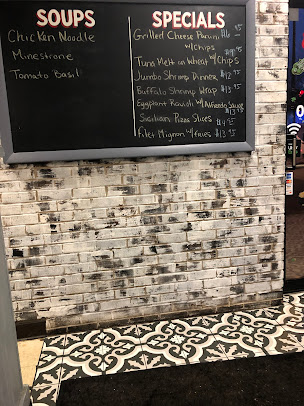 SOUPS
Chicken Noodle
Minestrone
Tomato Basil
SPECIALS
Grilled Cheese Panini
w/chips
Tuna Melt on Wheat w/ Chips
Jumbo Shrimp Dinner
Buffalo Shrimp Wrap
Eggplant w/ Alfredo Sauce
Sicilian Pizza Slices
Filet Mignon w/fries